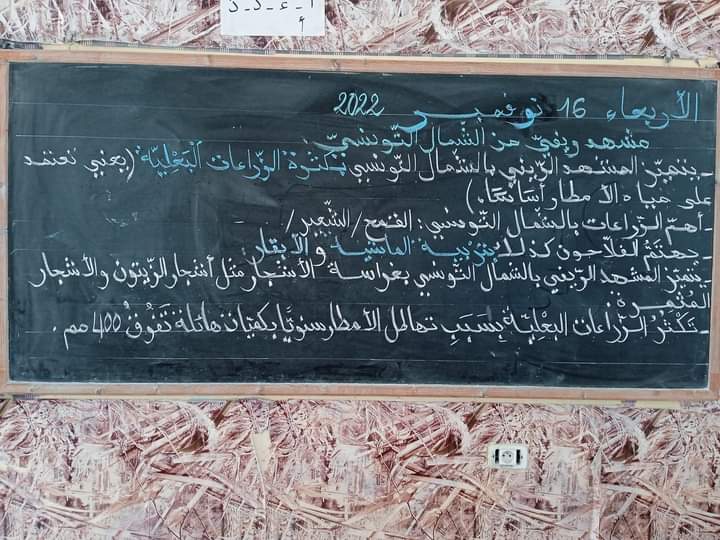 أ - د - د - ك
الأربعاء 16 نوفمبر 2022
مشهد ريفيّ من الشمال التّونسيّ
- يتميّز المشهد الرّيفي بالشمال التّونسي بكثرة الزّراعات البَعْلِيّة (يعني تعتمد
على مياه الأمطار أساسًا.)
- أهمّ الزّراعات بالشمال التّونسي: القمح/الشّعير/
- يهتمّ الفلاحون كذلك بتربية الماشية والأبقار.
- يتميّز المشهد الرّيفي بالشمال التّونسي بغراسة الأشجار مثل أشجار الزّيتون والأشجار
المُثمِرة.
- تَكْثُرُ الزّراعات البَعْلِيّة بِسَبَبِ تهاطل الأمطار سنويًّا بكمّيات هائلة تَفُوقُ 400 مم.